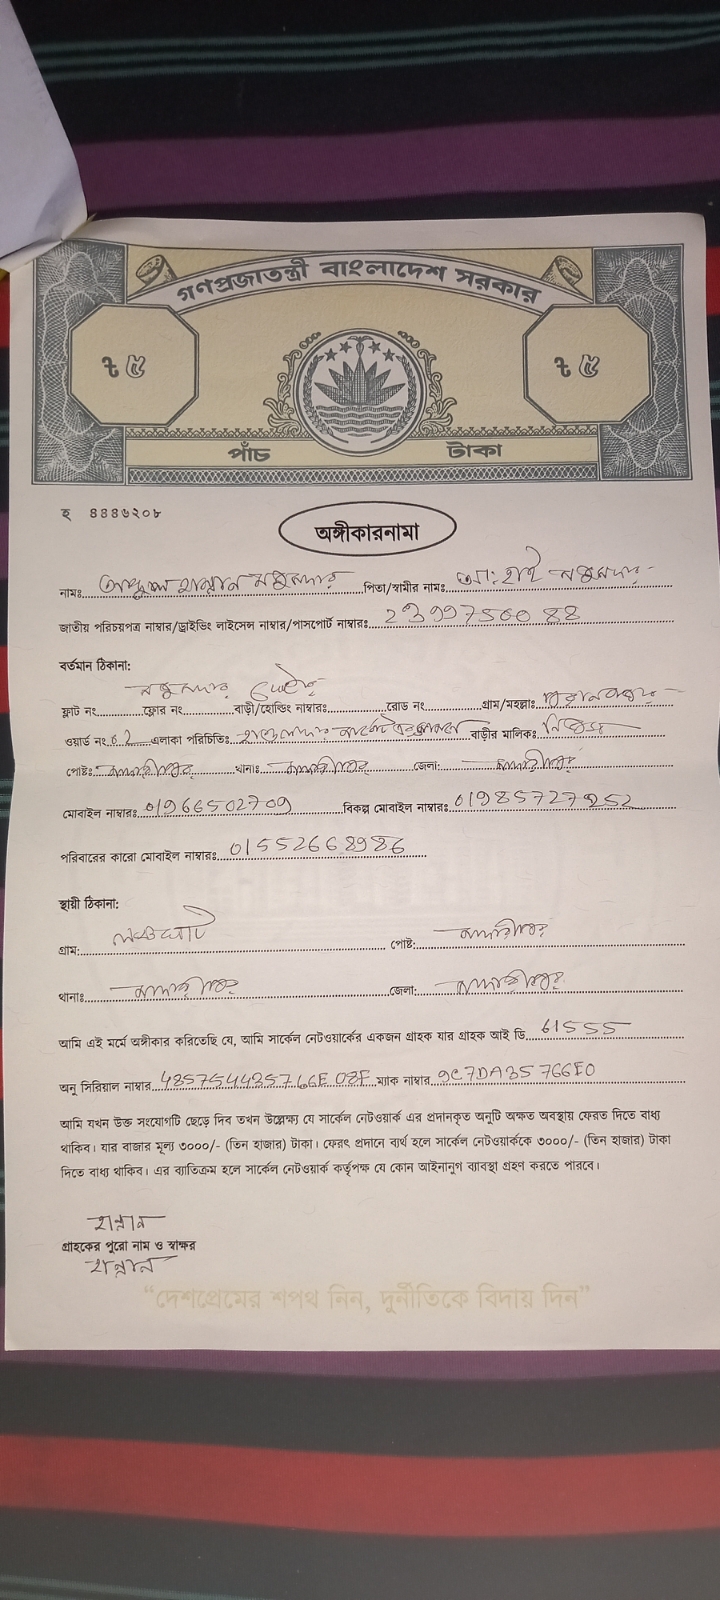 গণপ্রজাতন্ত্রী বাংলাদেশ সরকার
৳ ৫ ৳ ৫
পাঁচ টাকা
হ ৪৪৪৬২০৮
অঙ্গীকারনামা
নামঃ পিতা/স্বামীর নামঃ
জাতীয় পরিচয়পত্র নাম্বার/ড্রাইভিং লাইসেন্স নাম্বার/পাসপোর্ট নাম্বারঃ
বর্তমান ঠিকানা:
ফ্লাট নং ফ্লোর নং বাড়ী/হোল্ডিং নাম্বারঃ রোড নং গ্রাম/মহল্লাঃ
ওয়ার্ড নং এলাকা পরিচিতিঃ বাড়ীর মালিকঃ
পোষ্টঃ মাদারীপুর থানাঃ মাদারীপুর জেলা: মাদারীপুর
মোবাইল নাম্বারঃ 01966502709 বিকল্প মোবাইল নাম্বারঃ
পরিবারের কারো মোবাইল নাম্বারঃ 01552668986
স্থায়ী ঠিকানা:
গ্রাম: পোষ্ট: মাদারীপুর
থানাঃ মাদারীপুর জেলা: মাদারীপুর
আমি এই মর্মে অঙ্গীকার করিতেছি যে, আমি সার্কেল নেটওয়ার্কের একজন গ্রাহক যার গ্রাহক আই ডি 61555
অনু সিরিয়াল নাম্বার ম্যাক নাম্বার 9C7DA35766E0
আমি যখন উক্ত সংযোগটি ছেড়ে দিব তখন উল্লেক্ষ্য যে সার্কেল নেটওয়ার্ক এর প্রদানকৃত অনুটি অক্ষত অবস্থায় ফেরত দিতে বাধ্য
থাকিব। যার বাজার মূল্য ৩০০০/- (তিন হাজার) টাকা। ফেরৎ প্রদানে ব্যর্থ হলে সার্কেল নেটওয়ার্ককে ৩০০০/- (তিন হাজার) টাকা
দিতে বাধ্য থাকিব। এর ব্যতিক্রম হলে সার্কেল নেটওয়ার্ক কর্তৃপক্ষ যে কোন আইনানুগ ব্যাবস্থা গ্রহণ করতে পারবে।
হান্নান
গ্রাহকের পুরো নাম ও স্বাক্ষর
হান্নান
“দেশপ্রেমের শপথ নিন, দুর্নীতিকে বিদায় দিন”